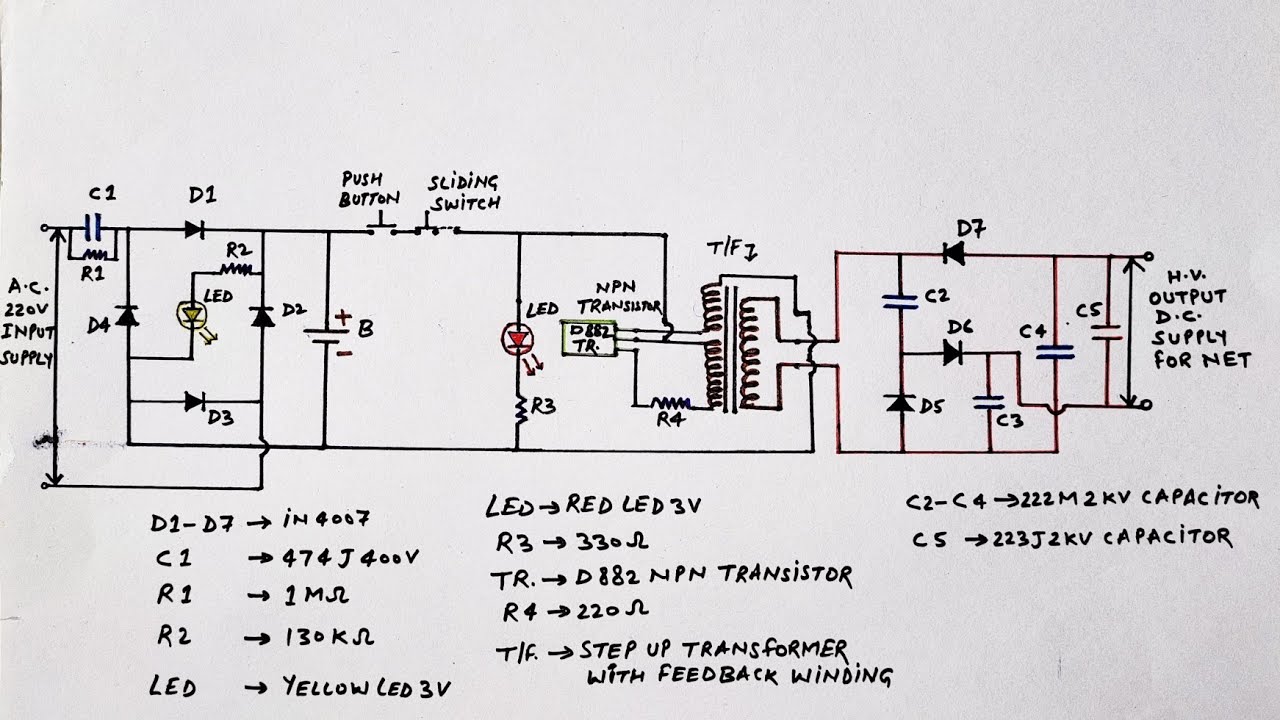 C1
D1
PUSH
BUTTON
SLIDING
SWITCH
R1
R2
LED
D4
D2
D3
A.C.
220V
INPUT
SUPPLY
+
B
-
LED
R3
NPN
TRANSISTOR
D882
TR.
R4
T/F
D7
C2
D6
D5
C3
C4
C5
H.V.
OUTPUT
D.C.
SUPPLY
FOR NET
D1-D7 → iN4007
C1 → 474J400V
R1 → 1MΩ
R2 → 130KΩ
LED → YELLOW LED 3V
LED → RED LED 3V
R3 → 330Ω
TR. → D882 NPN TRANSISTOR
R4 → 220Ω
T/F. → STEP UP TRANSFORMER
WITH FEEDBACK WINDING
C2-C4 → 222M2KV CAPACITOR
C5 → 223J2KV CAPACITOR